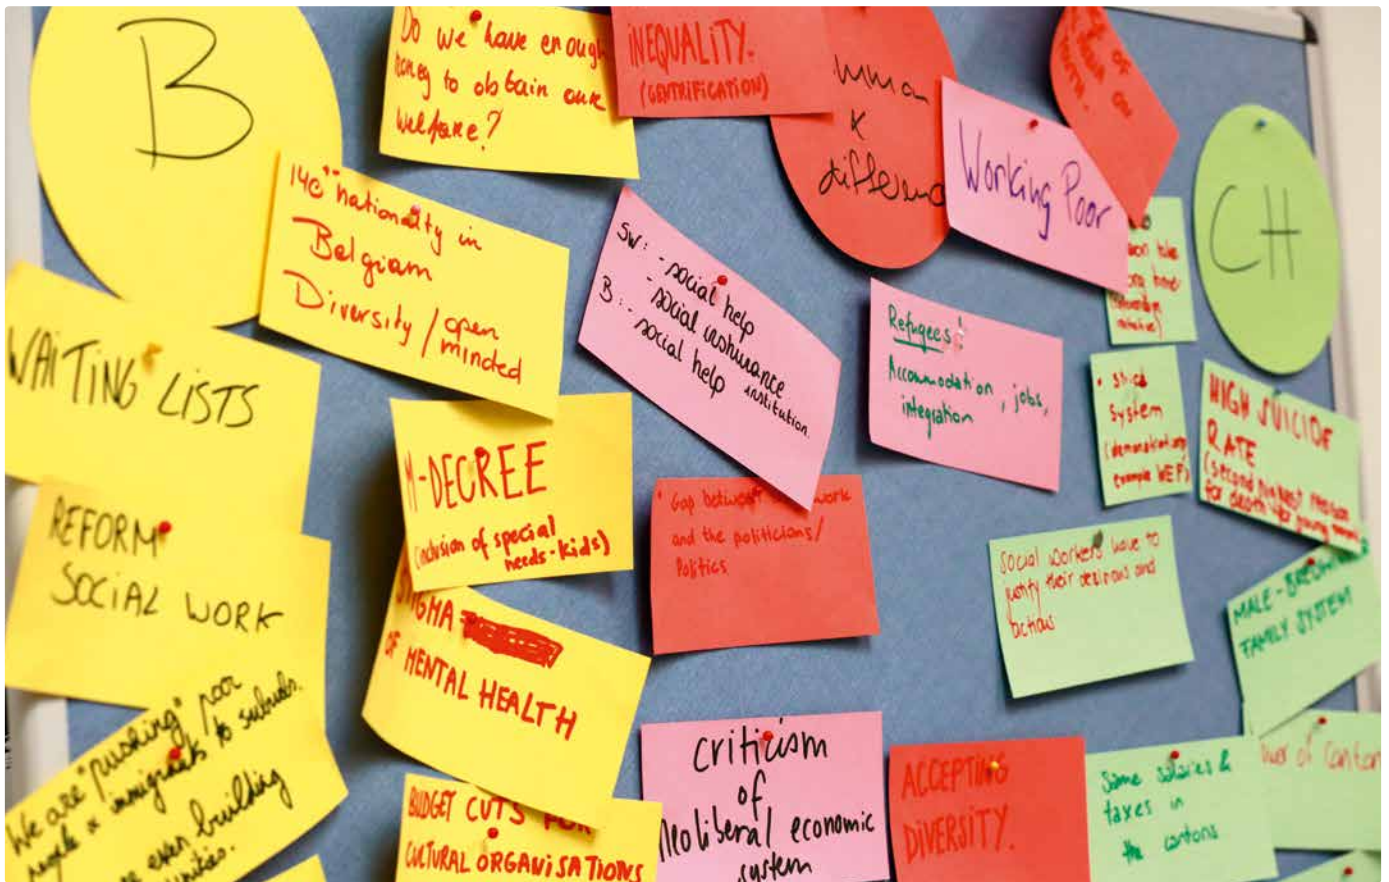 B
Do we have enough
money to obtain our
welfare?
INEQUALITY.
(GENTRIFICATION)
&
differenc
Working Poor
OF
CH
140" nationality in
Belgiam
Diversity / open
minded
SW: - social help
- social inshurance
B: - social help institution.
Refugees:
Accommodation, jobs,
integration
WAITING LISTS
M-DECREE
(inclusion of special
needs-kids)
• Strict
system
example WEF)
HIGH SUICIDE
RATE
(second highest reason
for death for young
REFORM
SOCIAL WORK
• Gap between work
and the politicians/
Politics
Social workers have to
justify their desicions and
actions
MALE-
FAMILY SYSTEM
STIGMA
OF MENTAL HEALTH
We are "pushing" poor
people & immigrants to suburbs.
even building
BUDGET CUTS FOR
CULTURAL ORGANISATIONS
criticism
of
Neoliberal economic
system
ACCEPTING
DIVERSITY.
Same salaries &
taxes in
the cantons
of Canton